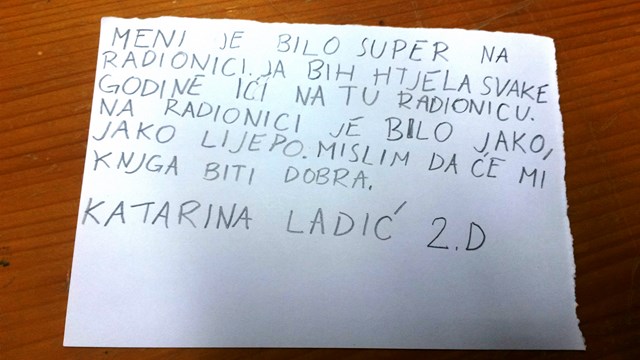 MENI JE BILO SUPER NA
RADIONICI. JA BIH HTJELA SVAKE
GODINE IĆI NA TU RADIONICU.
NA RADIONICI JE BILO JAKO,
JAKO LIJEPO. MISLIM DA ĆE MI
KNJGA BITI DOBRA.
KATARINA LADIĆ 2.D